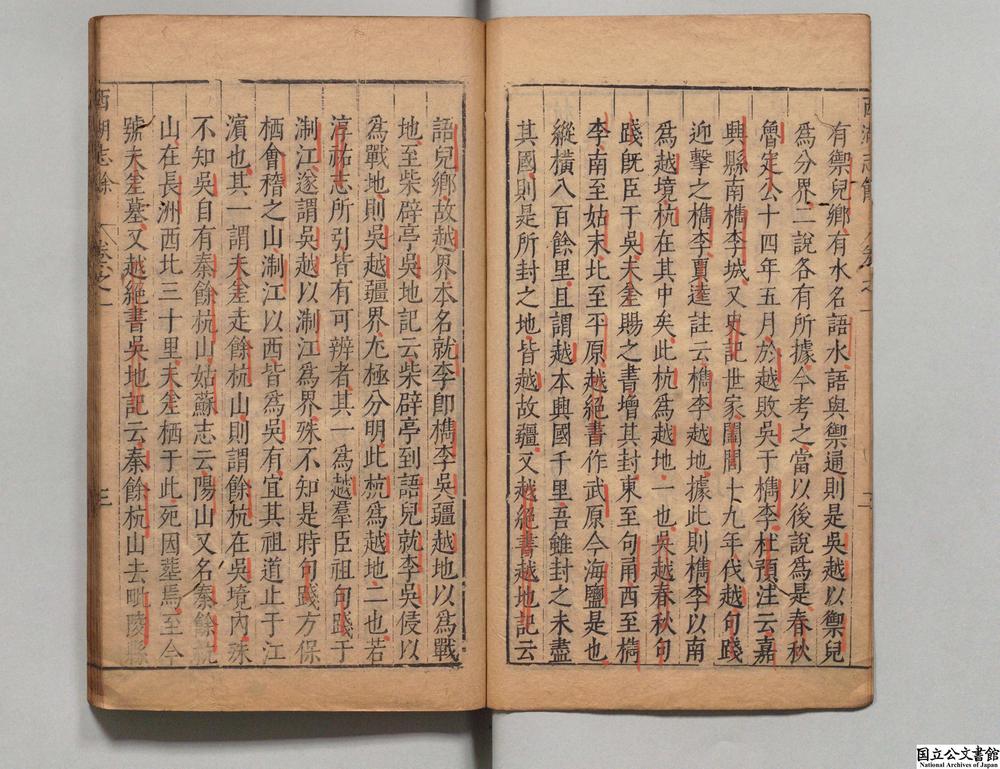 有禦兒鄉有水名語水語與禦通則是吳越以禦兒
為分界二說各有所據今考之當以後說為是春秋
魯定公十四年五月於越敗吳于檇李杜預注云嘉
興縣南檇李城又史記世家闔閭十九年伐越句踐
迎擊之檇李賈逵註云檇李越地據此則檇李以南
為越境杭在其中矣此杭為越地一也吳越春秋句
踐既臣于吳夫差賜之書增其封東至句甬西至檇
李南至姑末北至平原越絕書作武原今海鹽是也
縱橫八百餘里且謂越本興國千里吾雖封之未盡
其國則是所封之地皆越故疆又越絕書越地記云
語兒鄉故越界本名就李即檇李吳疆越地以為戰
地至柴辟亭吳地記云柴辟亭到語兒就李吳侵以
為戰地則吳越疆界尤極分明此杭為越地二也若
淳祐志所引皆有可辨者其一為越羣臣祖句踐于
淛江遂謂吳越以淛江為界殊不知是時句踐方保
栖會稽之山淛江以西皆為吳有宜其祖道止于江
濱也其一謂夫差走餘杭山則謂餘杭在吳境內殊
不知吳自有秦餘杭山姑蘇志云陽山又名秦餘杭
山在長洲西北三十里夫差栖于此死因塟焉至今
號夫差墓又越絕書吳地記云秦餘杭山去毗陵縣
西湖志餘 卷之一 三
国立公文書館
National Archives of Japan